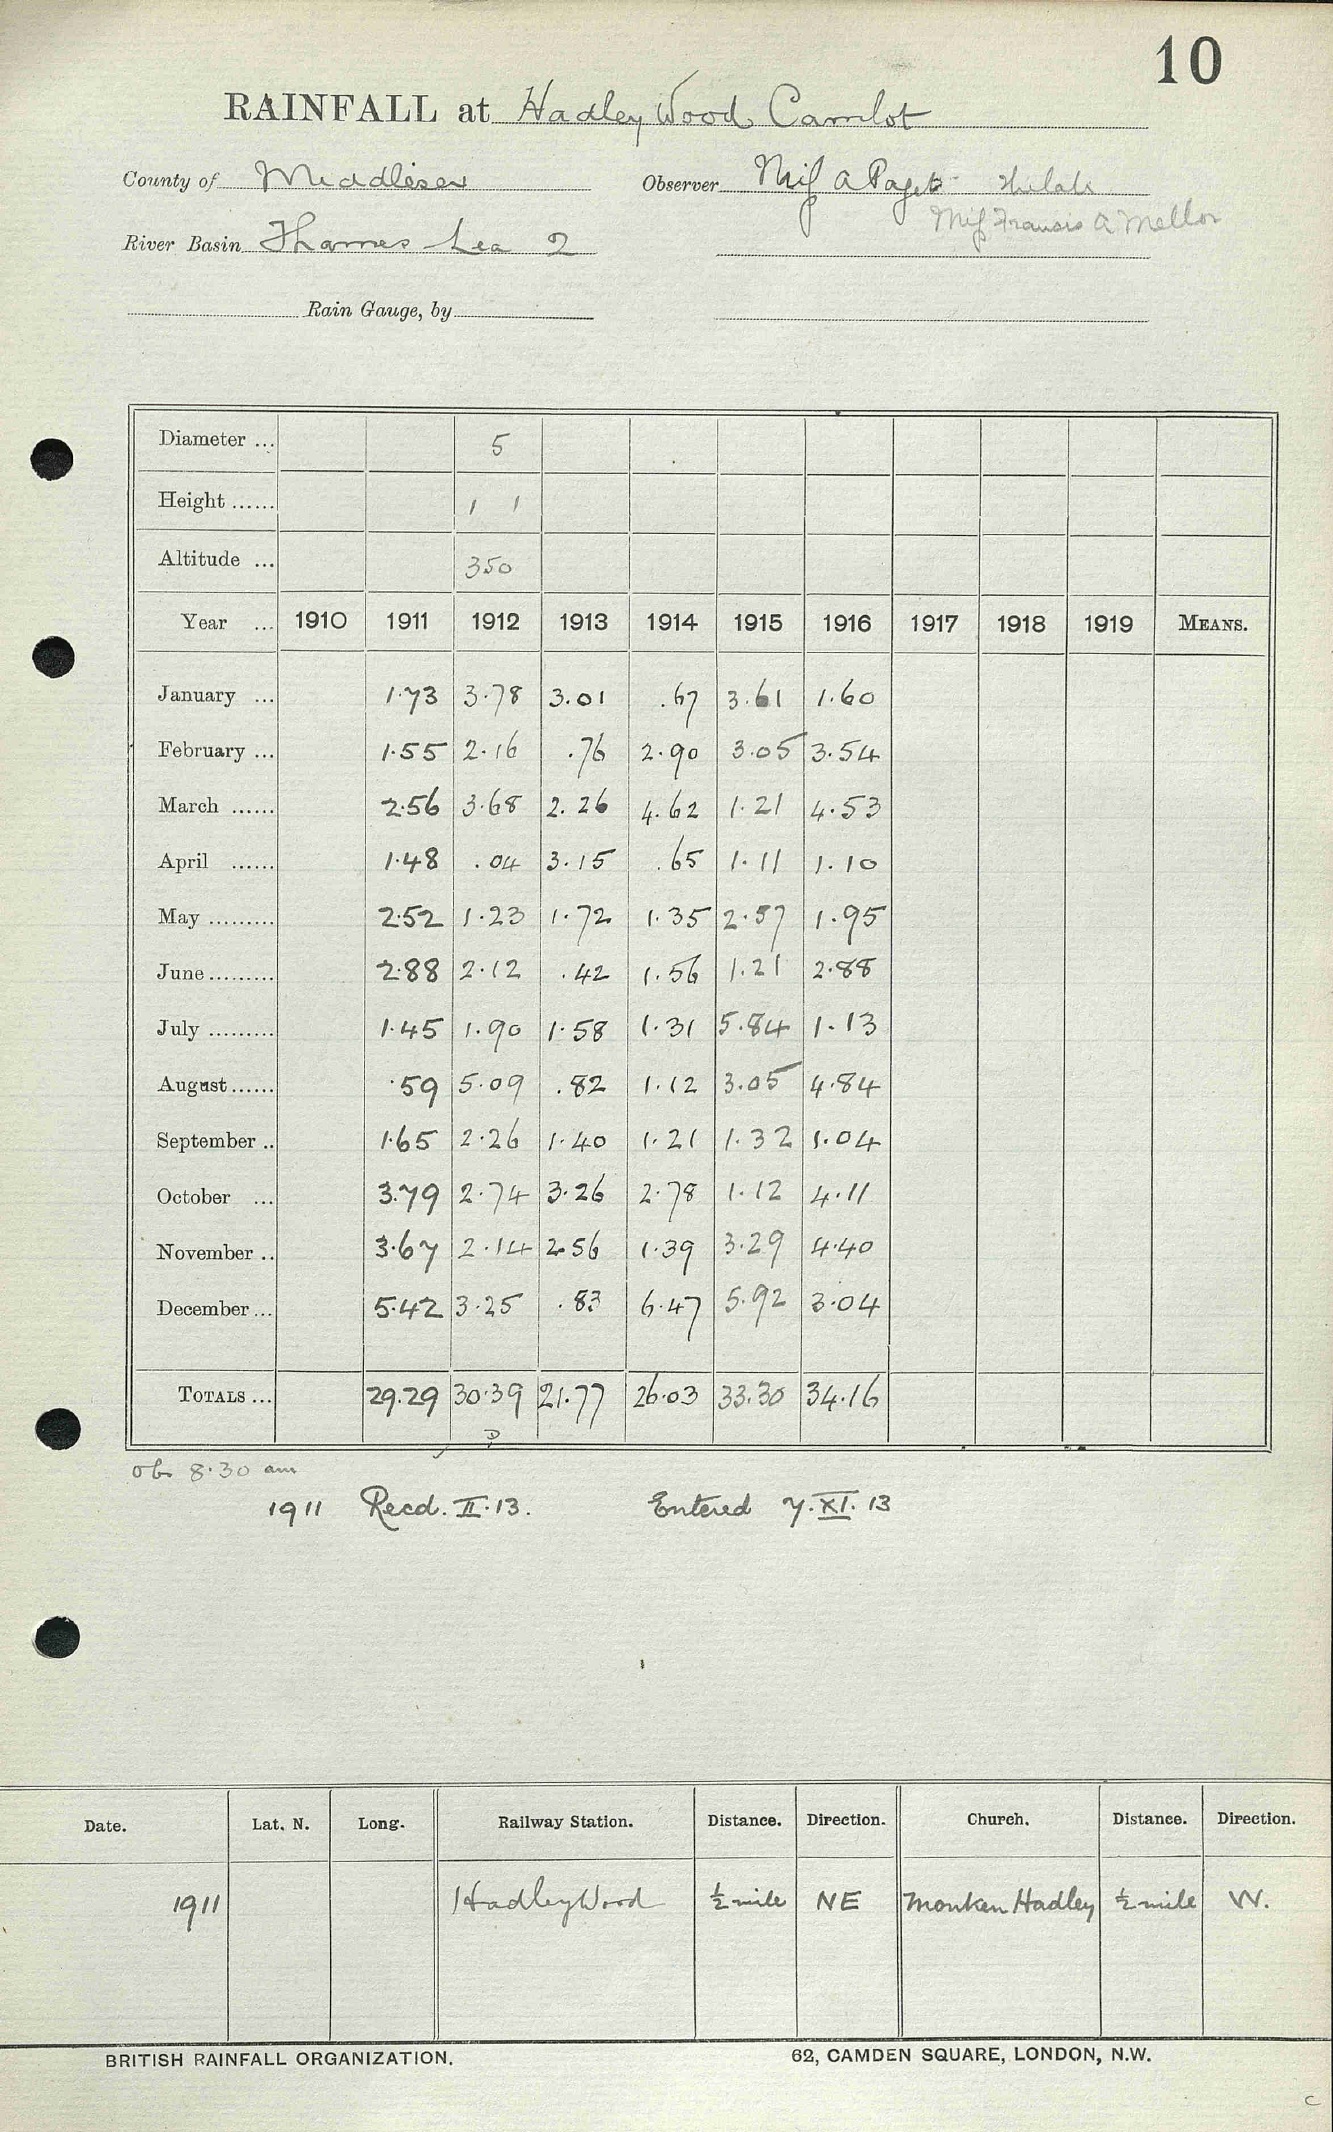 10
RAINFALL at Hadley Wood Camlot
County of Middlesex Observer Miss A Paget
Miss Francis A Mellor
River Basin Thames Lea 2
Rain Gauge, by
Diameter ... 5
Height ...... 1 1
Altitude ... 350
Year ... 1910 1911 1912 1913 1914 1915 1916 1917 1918 1919 MEANS.
January ... 1.73 3.78 3.01 .67 3.61 1.60
February ... 1.55 2.16 .76 2.90 3.05 3.54
March ...... 2.56 3.68 2.26 4.62 1.21 4.53
April ...... 1.48 .04 3.15 .65 1.11 1.10
May ......... 2.52 1.23 1.72 1.35 2.57 1.95
June ......... 2.88 2.12 .42 1.56 1.21 2.88
July ......... 1.45 1.90 1.58 1.31 5.84 1.13
August ...... .59 5.09 .82 1.12 3.05 4.84
September .. 1.65 2.26 1.40 1.21 1.32 1.04
October ... 3.79 2.74 3.26 2.78 1.12 4.11
November .. 3.67 2.14 2.56 1.39 3.29 4.40
December ... 5.42 3.25 .83 6.47 5.92 3.04
TOTALS ... 29.29 30.39 21.77 26.03 33.30 34.16
D
ob 8.30 am
1911 Recd. II.13. Entered 7.XI.13
Date. Lat. N. Long. Railway Station. Distance. Direction. Church. Distance. Direction.
1911 Hadley Wood ½ mile NE Monken Hadley ½ mile W.
BRITISH RAINFALL ORGANIZATION. 62, CAMDEN SQUARE, LONDON, N.W.
C